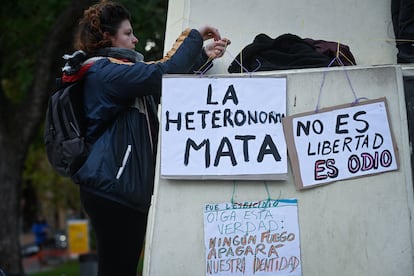 LA
HETERONORMA
MATA
NO ES
LIBERTAD
ES ODIO
FUE LESBICIDIO
OIGA ESTA
VERDAD:
NINGÚN FUEGO
APAGARA
NUESTRA IDENTIDAD